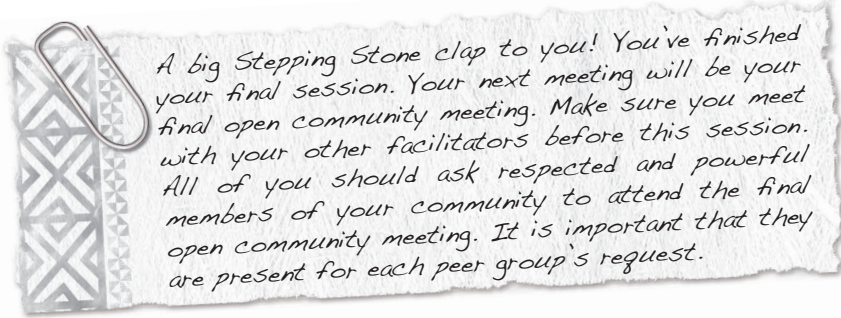 A big Stepping Stone clap to you! You've finished
your final session. Your next meeting will be your
final open community meeting. Make sure you meet
with your other facilitators before this session.
All of you should ask respected and powerful
members of your community to attend the final
open community meeting. It is important that they
are present for each peer group's request.